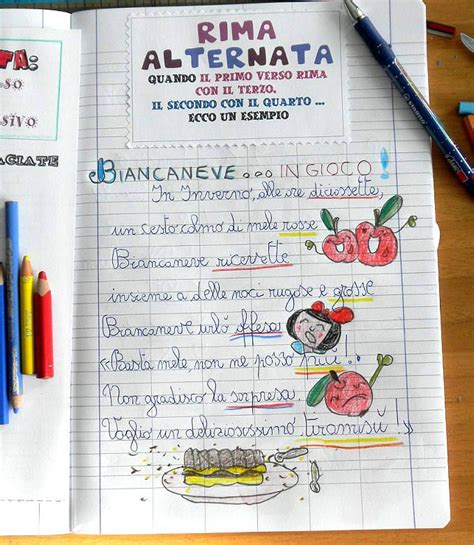 TA:
SO
SIVO
ACIATE
RIMA
ALTERNATA
QUANDO IL PRIMO VERSO RIMA
CON IL TERZO.
IL SECONDO CON IL QUARTO ...
ECCO UN ESEMPIO
BIANCANEVE... IN GIOCO!
In Inverno, alle ore diciassette,
un cesto colmo di mele rosse
Biancaneve ricevette
insieme a delle noci rugose e grosse
Biancaneve urlò offesa
«Basta mele, non ne posso più..
Non gradisco la sorpresa.
Voglio un deliziosissimo tiramisù!»